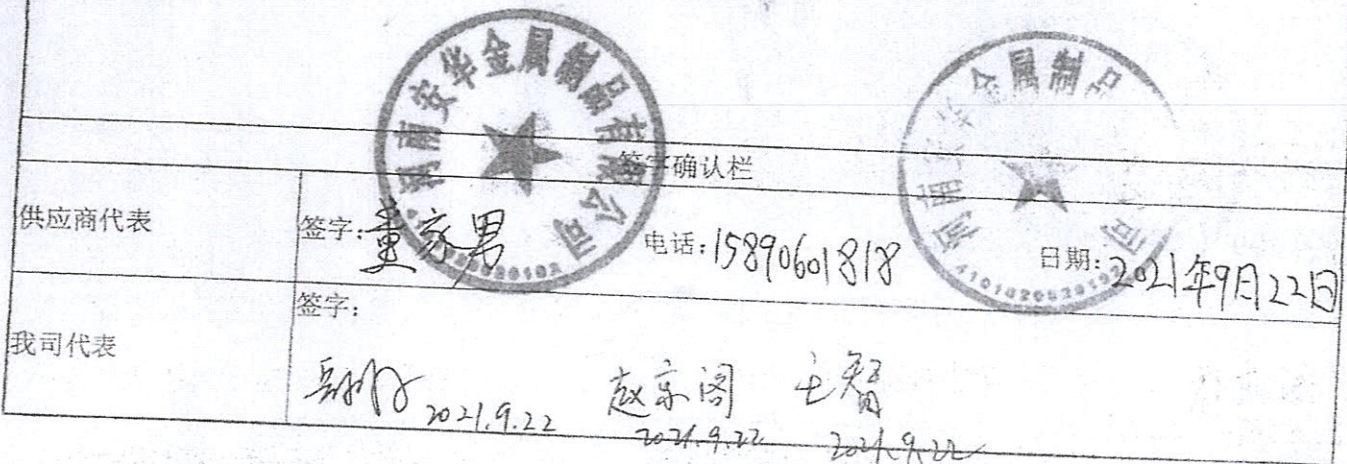 河南安华金属制品有限公司
河南安华金属制品
签字确认栏
供应商代表
签字:
电话:15890601818
日期:2021年9月22日
我司代表
签字:
2021.9.22
赵京阁
2021.9.22
王智
2021.9.22